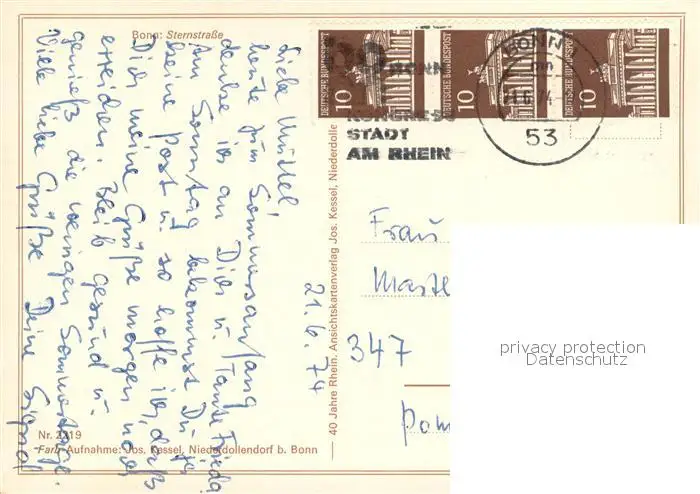 Bonn: Sternstraße
21.6.74
Liebe Muttel
heute zum Sommersanfang
denke ich an Dich u. Tante Frieda
Am Sonntag bekommst Du ja
keine Post u. so hoffe ich, daß
Dich meine Grüße morgen noch
erreichen. Bleib gesund u.
genieß die wenigen Sommertage.
Viele liebe Grüße Deine Sigrid
Nr. 2219
Farb-Aufnahme: Jos. Kessel, Niederdollendorf b. Bonn
40 Jahre Rhein. Ansichtskartenverlag Jos. Kessel, Niederdolle
DEUTSCHE BUNDESPOST
10
DEUTSCHE BUNDESPOST
10
DEUTSCHE BUNDESPOST
10
BONN
KONGRESS
STADT
AM RHEIN
BONN 1
21.6.74
53
Frau
347
privacy protection
Datenschutz